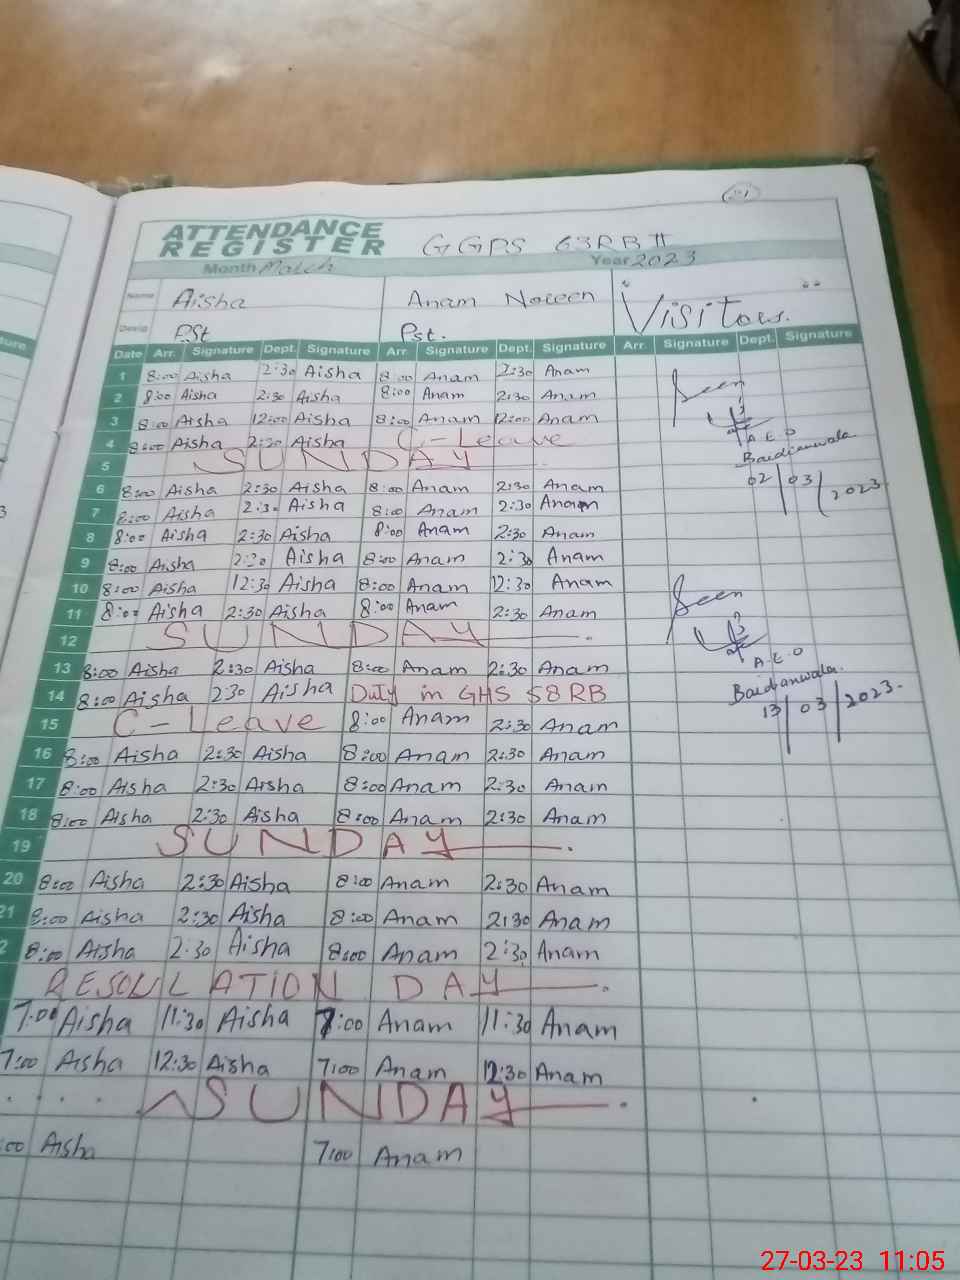 ATTENDANCE
REGISTER GGPS 63RB II
Month March Year 2023
Name Aisha Anam Noreen "Visitors."
Desig PSt Pst.
Date Arr. Signature Dept. Signature Arr. Signature Dept. Signature Arr. Signature Dept. Signature
1 8:00 Aisha 2:30 Aisha 8:00 Anam 2:30 Anam
2 8:00 Aisha 2:30 Aisha 8:00 Anam 2:30 Anam Seen
3 8:00 Aisha 12:00 Aisha 8:00 Anam 12:00 Anam
4 8:00 Aisha 2:30 Aisha C-Leave A.E.O
5 SUNDAY Baidianwala
6 8:00 Aisha 2:30 Aisha 8:00 Anam 2:30 Anam 02/03/2023
7 8:00 Aisha 2:30 Aisha 8:00 Anam 2:30 Anam
8 8:00 Aisha 2:30 Aisha 8:00 Anam 2:30 Anam
9 8:00 Aisha 2:30 Aisha 8:00 Anam 2:30 Anam
10 8:00 Aisha 12:30 Aisha 8:00 Anam 12:30 Anam
11 8:00 Aisha 2:30 Aisha 8:00 Anam 2:30 Anam Seen
12 SUNDAY
13 8:00 Aisha 2:30 Aisha 8:00 Anam 2:30 Anam A.E.O
14 8:00 Aisha 230 Aisha Duty in GHS 58 RB Baidianwala.
15 C-Leave 8:00 Anam 2:30 Anam 13/03/2023.
16 8:00 Aisha 2:30 Aisha 8:00 Anam 2:30 Anam
17 8:00 Aisha 2:30 Aisha 8:00 Anam 2:30 Anam
18 8:00 Aisha 2:30 Aisha 8:00 Anam 2:30 Anam
19 SUNDAY
20 8:00 Aisha 2:30 Aisha 8:00 Anam 2:30 Anam
21 8:00 Aisha 2:30 Aisha 8:00 Anam 2:30 Anam
2 8:00 Aisha 2:30 Aisha 8:00 Anam 2:30 Anam
RESOULATION DAY
7:00 Aisha 11:30 Aisha 7:00 Anam 11:30 Anam
7:00 Aisha 12:30 Aisha 7:00 Anam 12:30 Anam
SUNDAY
:00 Aisha 7:00 Anam
27-03-23 11:05